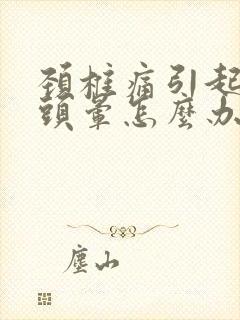 頚椎痛引起
頭暈怎麼办
塵山